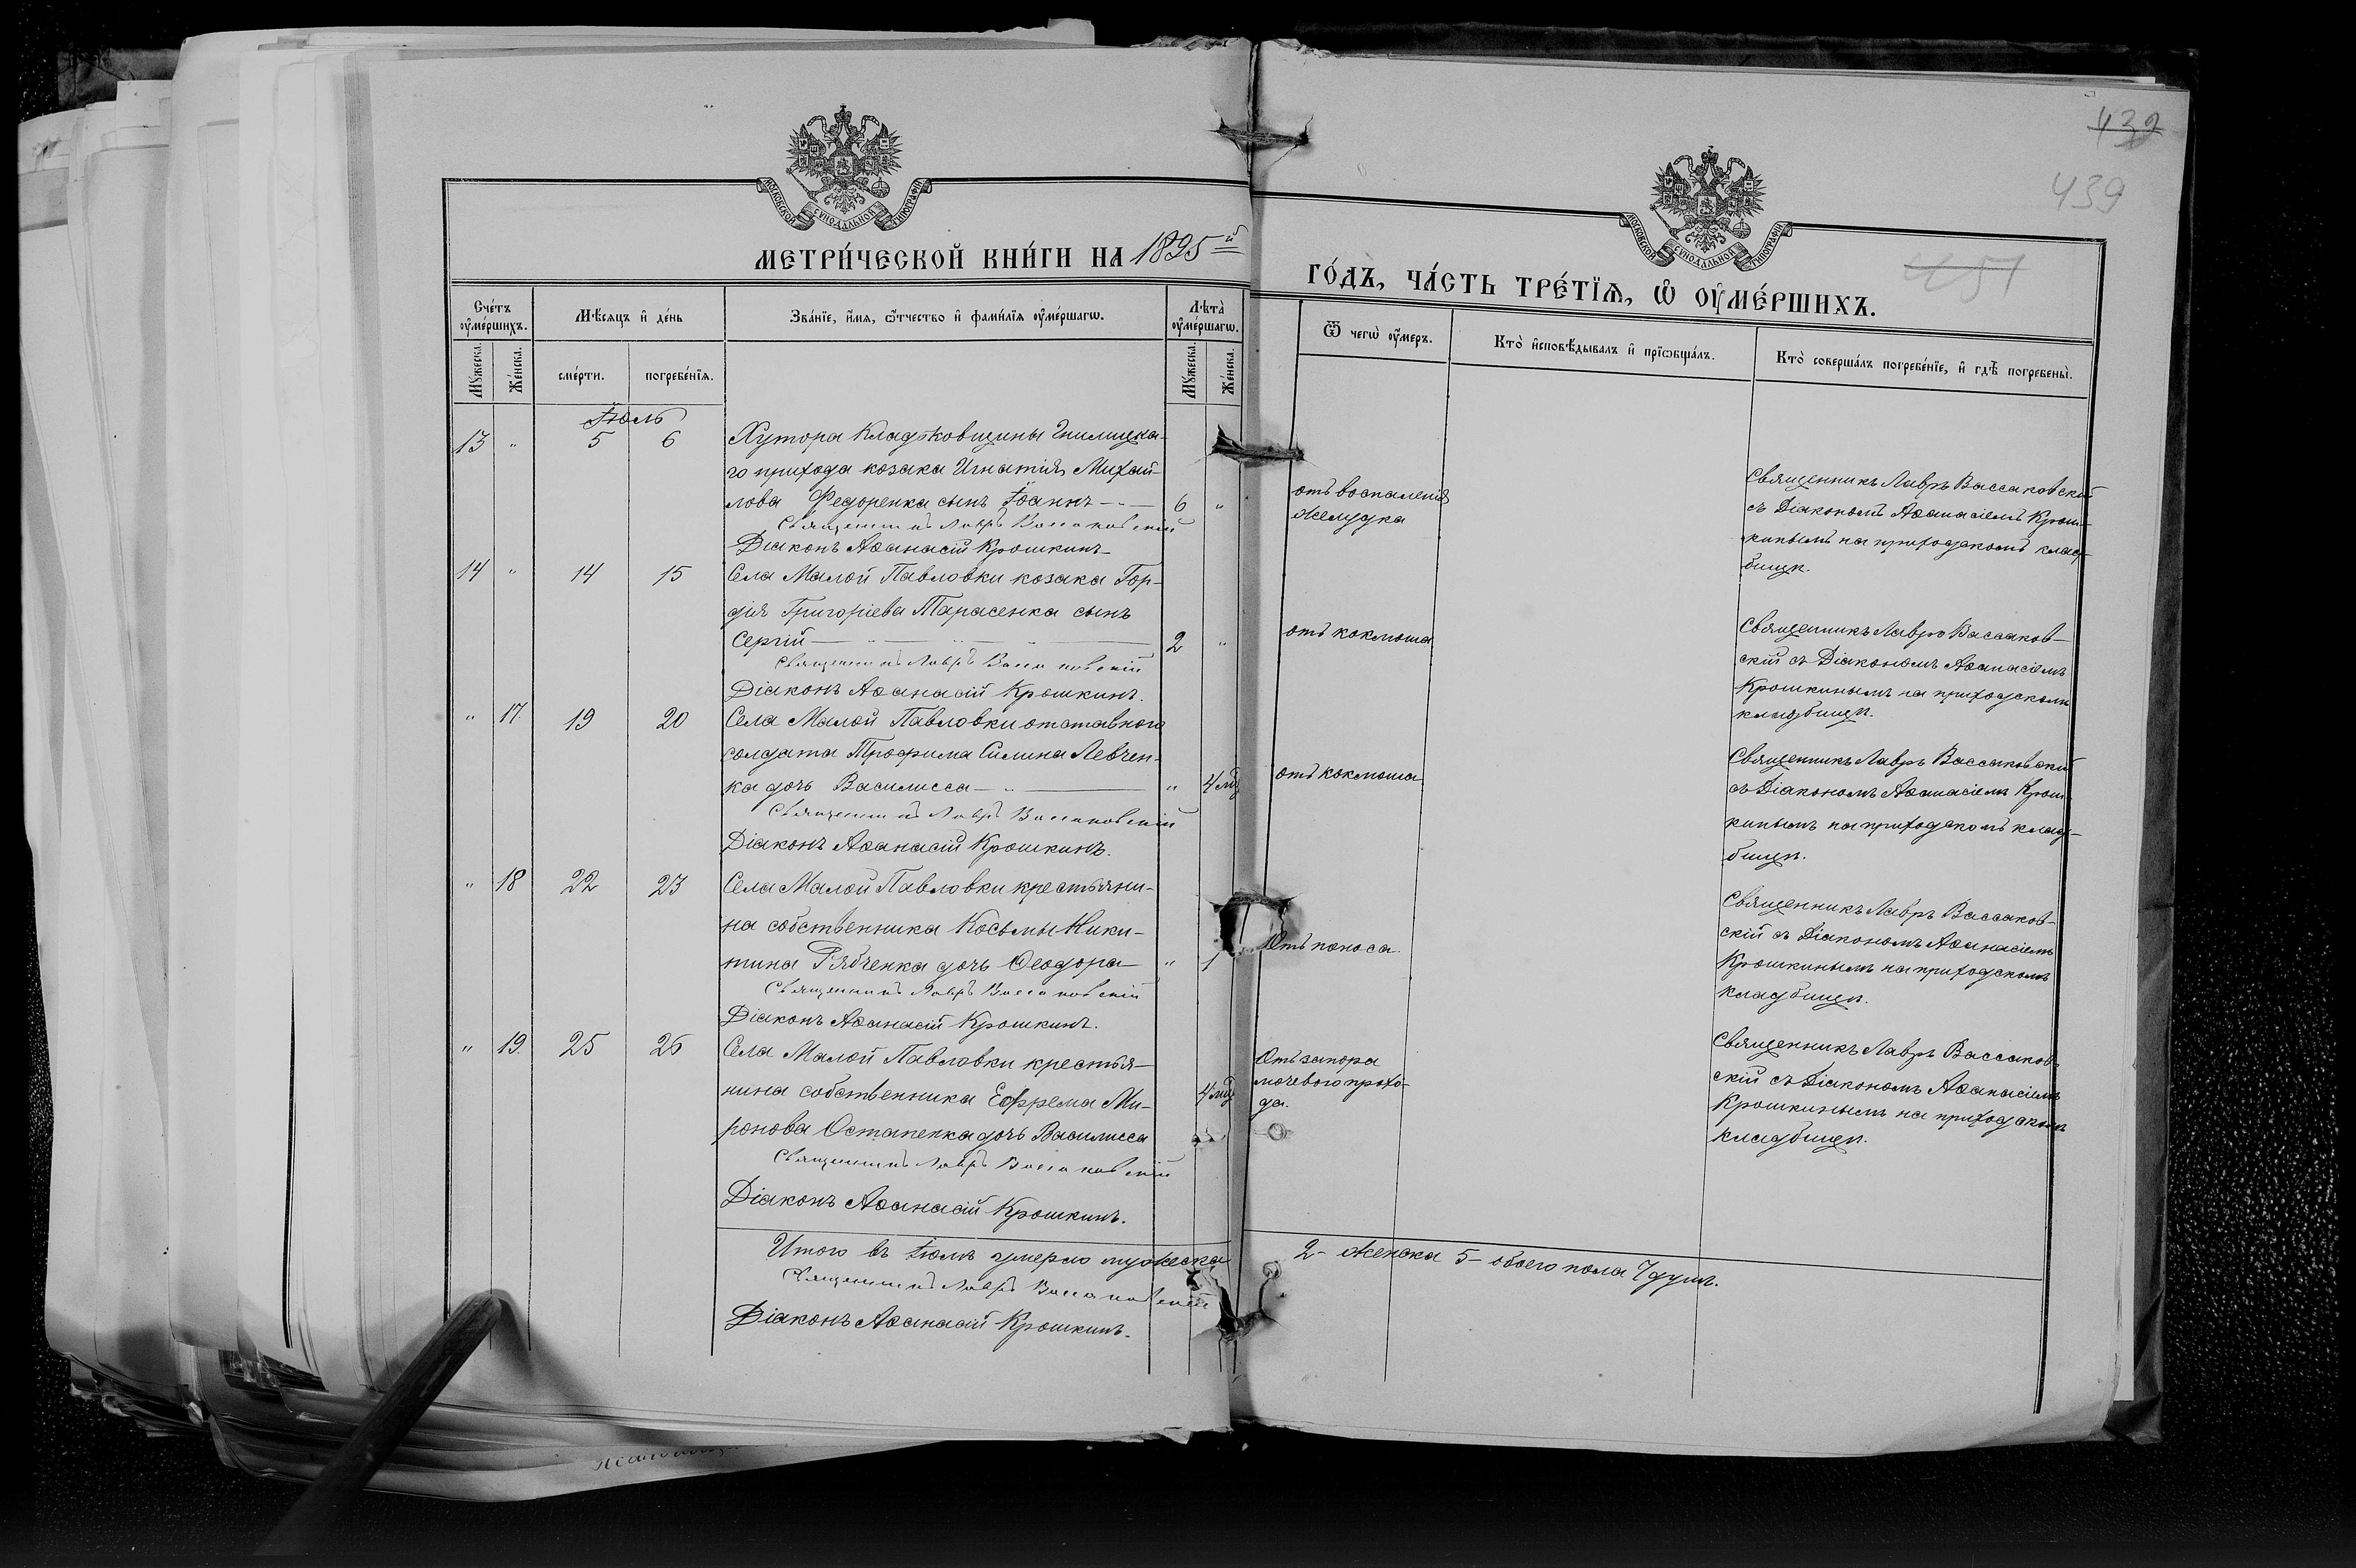 432
439
457
МОСКОВСКОЙ СѴНОДАЛЬНОЙ ТИПОГРАФІИ
МОСКОВСКОЙ СѴНОДАЛЬНОЙ ТИПОГРАФІИ
МЕТРИ́ЧЕСКОЙ КНИ́ГИ НА 1895 й
ГО́ДЪ, ЧА́СТЬ ТРЕ́ТЇѦ, Ѡ҆ ОУ҆МЕ́РШИХЪ.
Сче́тъ оу҆ме́ршихъ.
Мѣ́сѧцъ и҆ де́нь
Зва́нїе, и҆́мѧ, ѻ҆́тчество и҆ фами́лїѧ оу҆ме́ршагѡ.
Лѣ́та оу҆ме́ршагѡ.
Ѿ чегѡ̀ оу҆́меръ.
Кто̀ и҆сповѣ́дывалъ и҆ прїѡбща́лъ.
Кто̀ соверша́лъ погребе́нїе, и҆ гдѣ̀ погребены̀.
Мꙋ́жеска.
Же́нска.
сме́рти.
погребе́нїѧ.
Мꙋ́жеска.
Же́нска.
Іюль
13 " 5 6 Хутора Кладьковщины Гнилицка-
го прихода козака Игнатія Михай-
лова Федоренка сынъ Іоаннъ 6 "
Священникъ Лавръ Вассаковскій
Діаконъ Аѳанасій Крошкинъ
отъ воспаленія
желудка
Священникъ Лавръ Вассаковскій
съ Діакономъ Аѳанасіемъ Крош-
кинымъ на приходскомъ клад-
бищѣ.
14 " 14 15 Села Малой Павловки козака Гор-
дія Григоріева Тарасенка сынъ
Сергій 2 "
Священникъ Лавръ Вассаковскій
Діаконъ Аѳанасій Крошкинъ.
отъ коклюша
Священникъ Лавръ Вассаков-
скій съ Діакономъ Аѳанасіемъ
Крошкинымъ на приходскомъ
кладбищѣ.
" 17. 19 20 Села Малой Павловки отставного
солдата Трофима Силина Левчен-
ка дочь Василисса " 4 мц
Священникъ Лавръ Вассаковскій
Діаконъ Аѳанасій Крошкинъ.
отъ коклюша
Священникъ Лавръ Вассаковскій
съ Діакономъ Аѳанасіемъ Крош-
кинымъ на приходскомъ клад-
бищѣ.
" 18 22 23 Села Малой Павловки крестьяни-
на собственника Косьмы Ники-
тина Рябченка дочь Ѳеодора " 1
Священникъ Лавръ Вассаковскій
Діаконъ Аѳанасій Крошкинъ.
Отъ поноса.
Священникъ Лавръ Вассаков-
скій съ Діакономъ Аѳанасіемъ
Крошкинымъ на приходскомъ
кладбищѣ.
" 19. 25 26 Села Малой Павловки крестья-
нина собственника Ефрема Ми-
ронова Остапенка дочь Василисса 4 мц
Священникъ Лавръ Вассаковскій
Діаконъ Аѳанасій Крошкинъ.
Отъ запора
мочевого прохо-
да.
Священникъ Лавръ Вассаков-
скій съ Діакономъ Аѳанасіемъ
Крошкинымъ на приходскомъ
кладбищѣ.
Итого въ Іюлѣ умерло мужеска 2 - женска 5 - обоего пола 7 душъ.
Священникъ Лавръ Вассаковскій
Діаконъ Аѳанасій Крошкинъ.